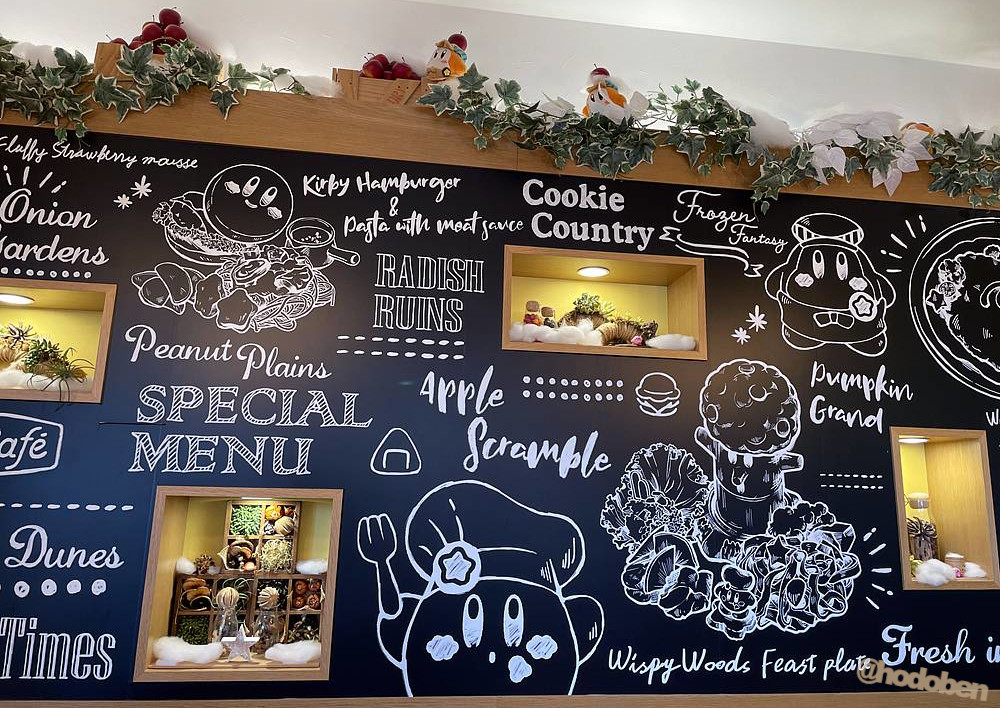 Fluffy Strawberry mousse
Onion
Gardens
Kirby Hamburger
&
Pasta with meat sauce
Cookie
Country
Frozen
Fantasy
RADISH
RUINS
Peanut Plains
SPECIAL
MENU
Apple
Scramble
Pumpkin
Grand
Café
Dunes
Times
Wispy Woods Feast plate
Fresh
@hodoben